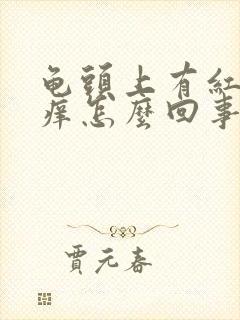 龟頭上有紅
痒怎麼回事
賈元春